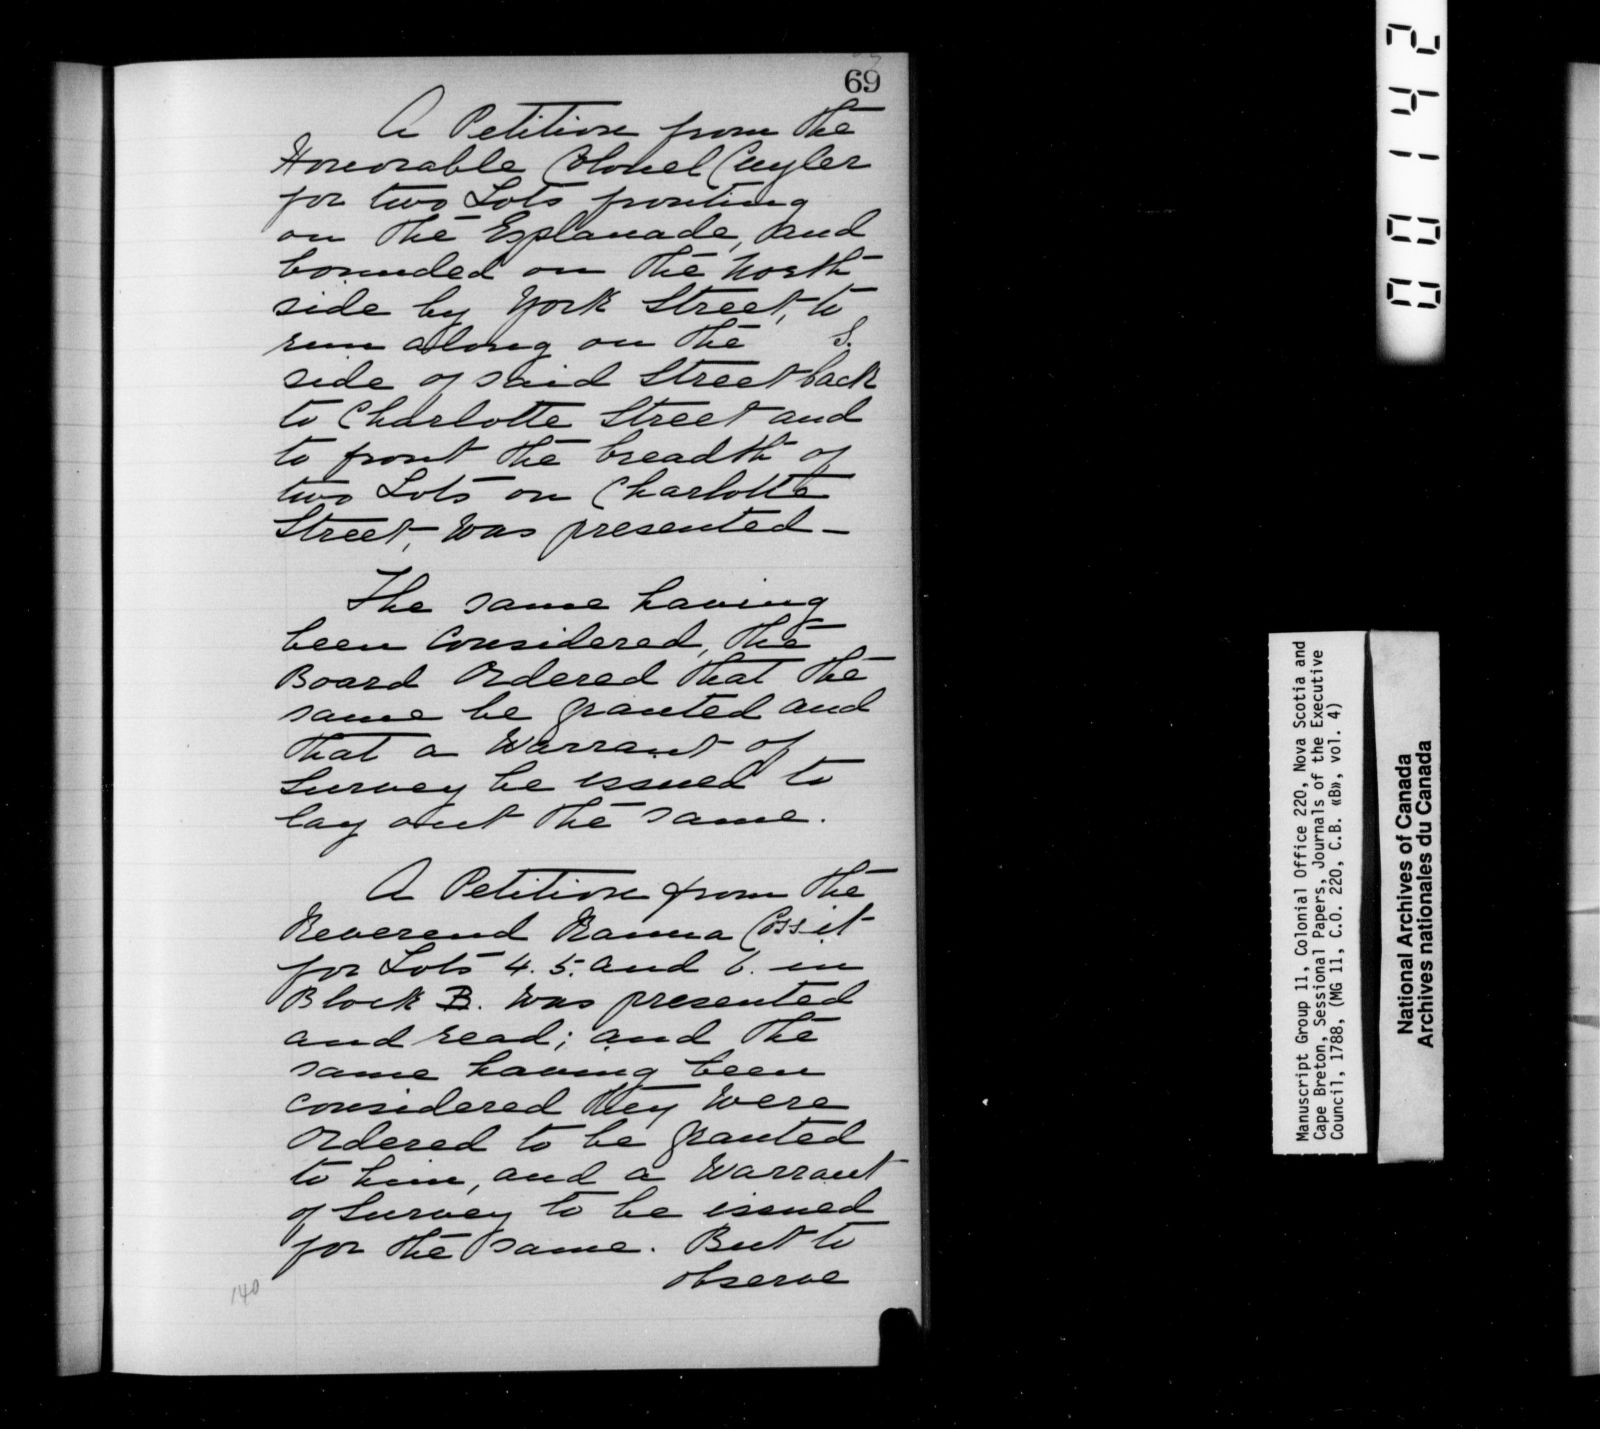 69
A Petition from the
Honorable Colonel Cuyler
for two Lots fronting
on the Esplanade, and
bounded on the North
side by York Street, to
run along on the S.
side of said Street back
to Charlotte Street and
to front the breadth of
two Lots on Charlotte
Street, was presented —
The same having
been considered, the
Board Ordered that the
same be granted and
that a Warrant of
Survey be issued to
lay out the same.
A Petition from the
Reverend Ranna Cossit
for Lots 4. 5. and 6. in
Block B. was presented
and read; and the
same having been
considered they were
Ordered to be granted
to him, and a Warrant
of Survey to be issued
for the same. But to
observe
140
00142
Manuscript Group 11, Colonial Office 220, Nova Scotia and
Cape Breton, Sessional Papers, Journals of the Executive
Council, 1788, (MG 11, C.O. 220, C.B. «B», vol. 4)
National Archives of Canada
Archives nationales du Canada